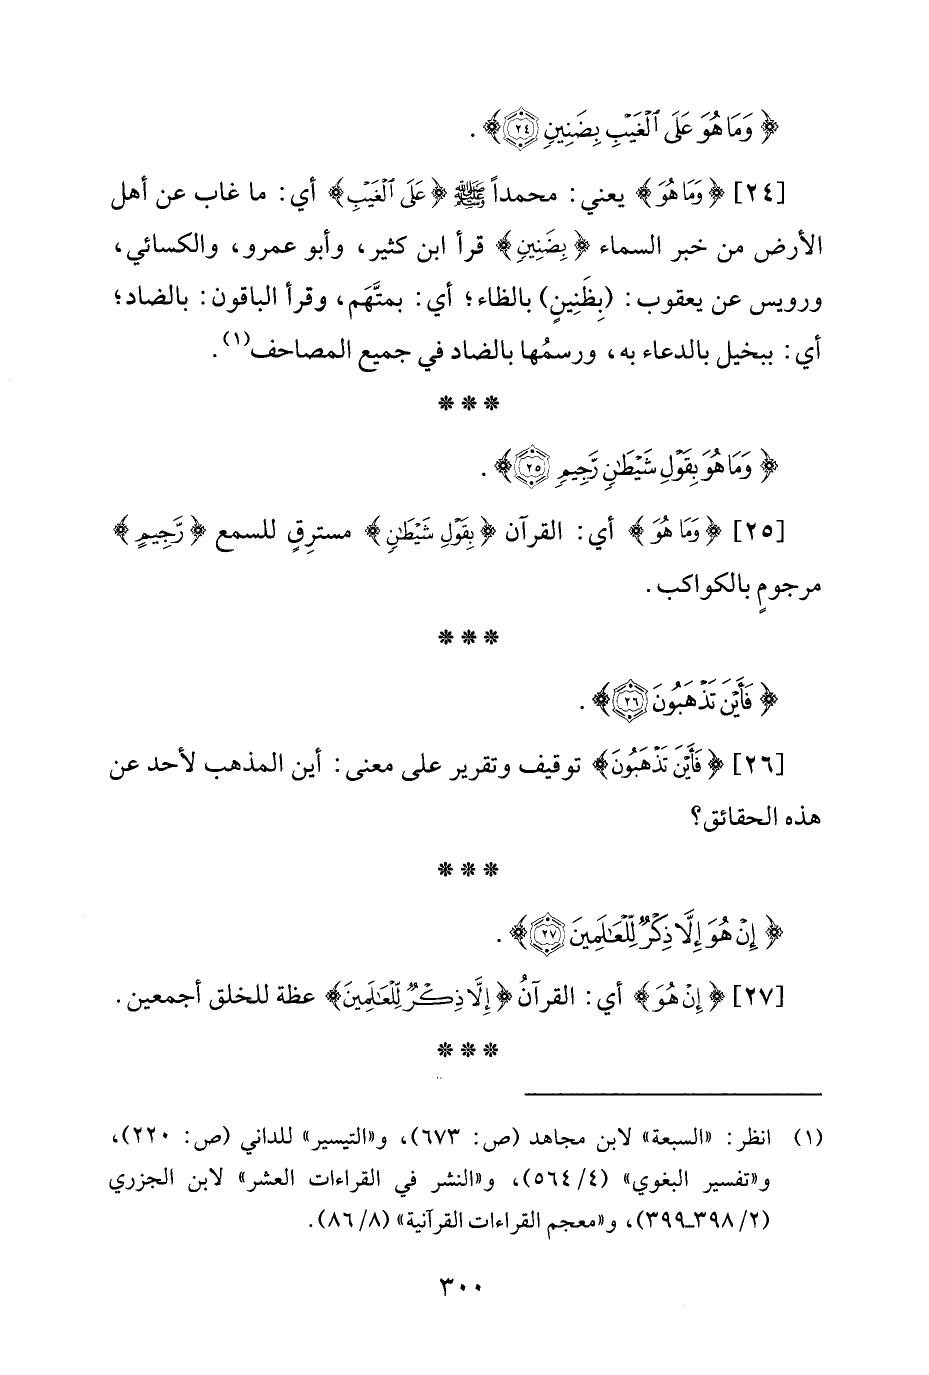 ﴿ وَمَا هُوَ عَلَى ٱلْغَيْبِ بِضَنِينٍ ٢٤ ﴾ .
[٢٤] ﴿ وَمَا هُوَ ﴾ يعني : محمداً ﷺ ﴿ عَلَى ٱلْغَيْبِ ﴾ أي : ما غاب عن أهل
الأرض من خبر السماء ﴿ بِضَنِينٍ ﴾ قرأ ابن كثير ، وأبو عمرو ، والكسائي ،
ورويس عن يعقوب : (بِظَنِينٍ) بالظاء ؛ أي : بمتَّهَم ، وقرأ الباقون : بالضاد ؛
أي : ببخيل بالدعاء به ، ورسمُها بالضاد في جميع المصاحف(١) .
* * *
﴿ وَمَا هُوَ بِقَوْلِ شَيْطَٰنٍ رَّجِيمٍ ٢٥ ﴾ .
[٢٥] ﴿ وَمَا هُوَ ﴾ أي : القرآن ﴿ بِقَوْلِ شَيْطَٰنٍ ﴾ مسترِقٍ للسمع ﴿ رَّجِيمٍ ﴾
مرجومٍ بالكواكب .
* * *
﴿ فَأَيْنَ تَذْهَبُونَ ٢٦ ﴾ .
[٢٦] ﴿ فَأَيْنَ تَذْهَبُونَ ﴾ توقيف وتقرير على معنى : أين المذهب لأحد عن
هذه الحقائق ؟
* * *
﴿ إِنْ هُوَ إِلَّا ذِكْرٌ لِّلْعَٰلَمِينَ ٢٧ ﴾ .
[٢٧] ﴿ إِنْ هُوَ ﴾ أي : القرآنُ ﴿ إِلَّا ذِكْرٌ لِّلْعَٰلَمِينَ ﴾ عظة للخلق أجمعين .
* * *
(١) انظر : «السبعة» لابن مجاهد (ص : ٦٧٣) ، و«التيسير» للداني (ص : ٢٢٠) ،
و«تفسير البغوي» (٤/ ٥٦٤) ، و«النشر في القراءات العشر» لابن الجزري
(٢/ ٣٩٨ـ٣٩٩) ، و«معجم القراءات القرآنية» (٨/ ٨٦) .
٣٠٠